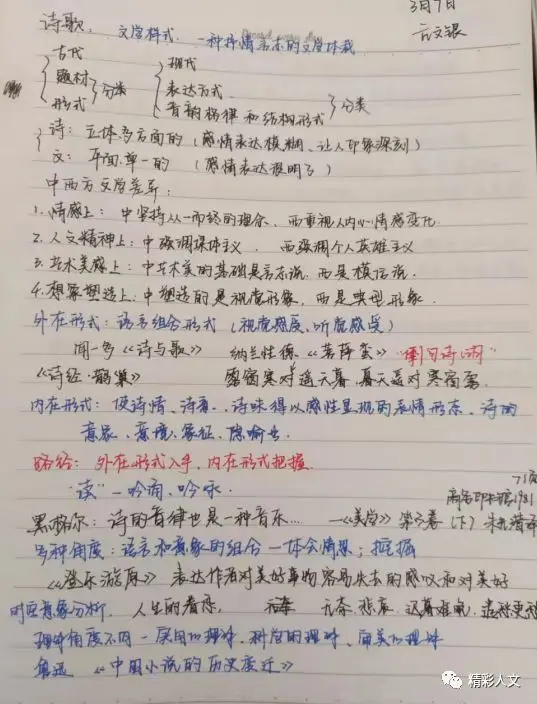 3月7日
诗歌：文学样式，一种抒情言志的文学体裁
古代 现代
题材 分类 表达方式
形式 音韵格律和结构形式 分类
诗：立体多方面的（感情表达模糊、让人印象深刻）
文：平面、单一的（感情表达很明了）
中西方文学差异：
1.情感上：中坚持从一而终的理念、西重视人内心情感变化
2.人文精神上：中强调集体主义、西强调个人英雄主义
3.艺术美感上：中艺术美的基础是言志说、西是模仿说.
4.想象塑造上：中塑造的是视觉形象，西是典型形象.
外在形式：语言组合形式（视觉感受、听觉感受）
闻一多《诗与歌》 纳兰性德《菩萨蛮》
《诗经·鹊巢》 雾窗寒对遥天暮，暮天遥对寒窗雾.
内在形式：使诗情、诗意、诗味得以感性显现的表情形态、诗的
意象、意境、象征、隐喻等.
路径：外在形式入手，内在形式把握.
“读”—吟诵、吟咏.
71页
商务印书馆1981
黑格尔：诗的音律也是一种音乐… —《美学》第三卷（下）朱光潜译
多种角度：语言和意象的组合—体会情思；挖掘
《登乐游原》表达作者对美好事物容易失去的感叹和对美好
对应意象分析. 人生的眷恋，
理解角度不同—
鲁迅《中国小说的历史变迁》
精彩人文